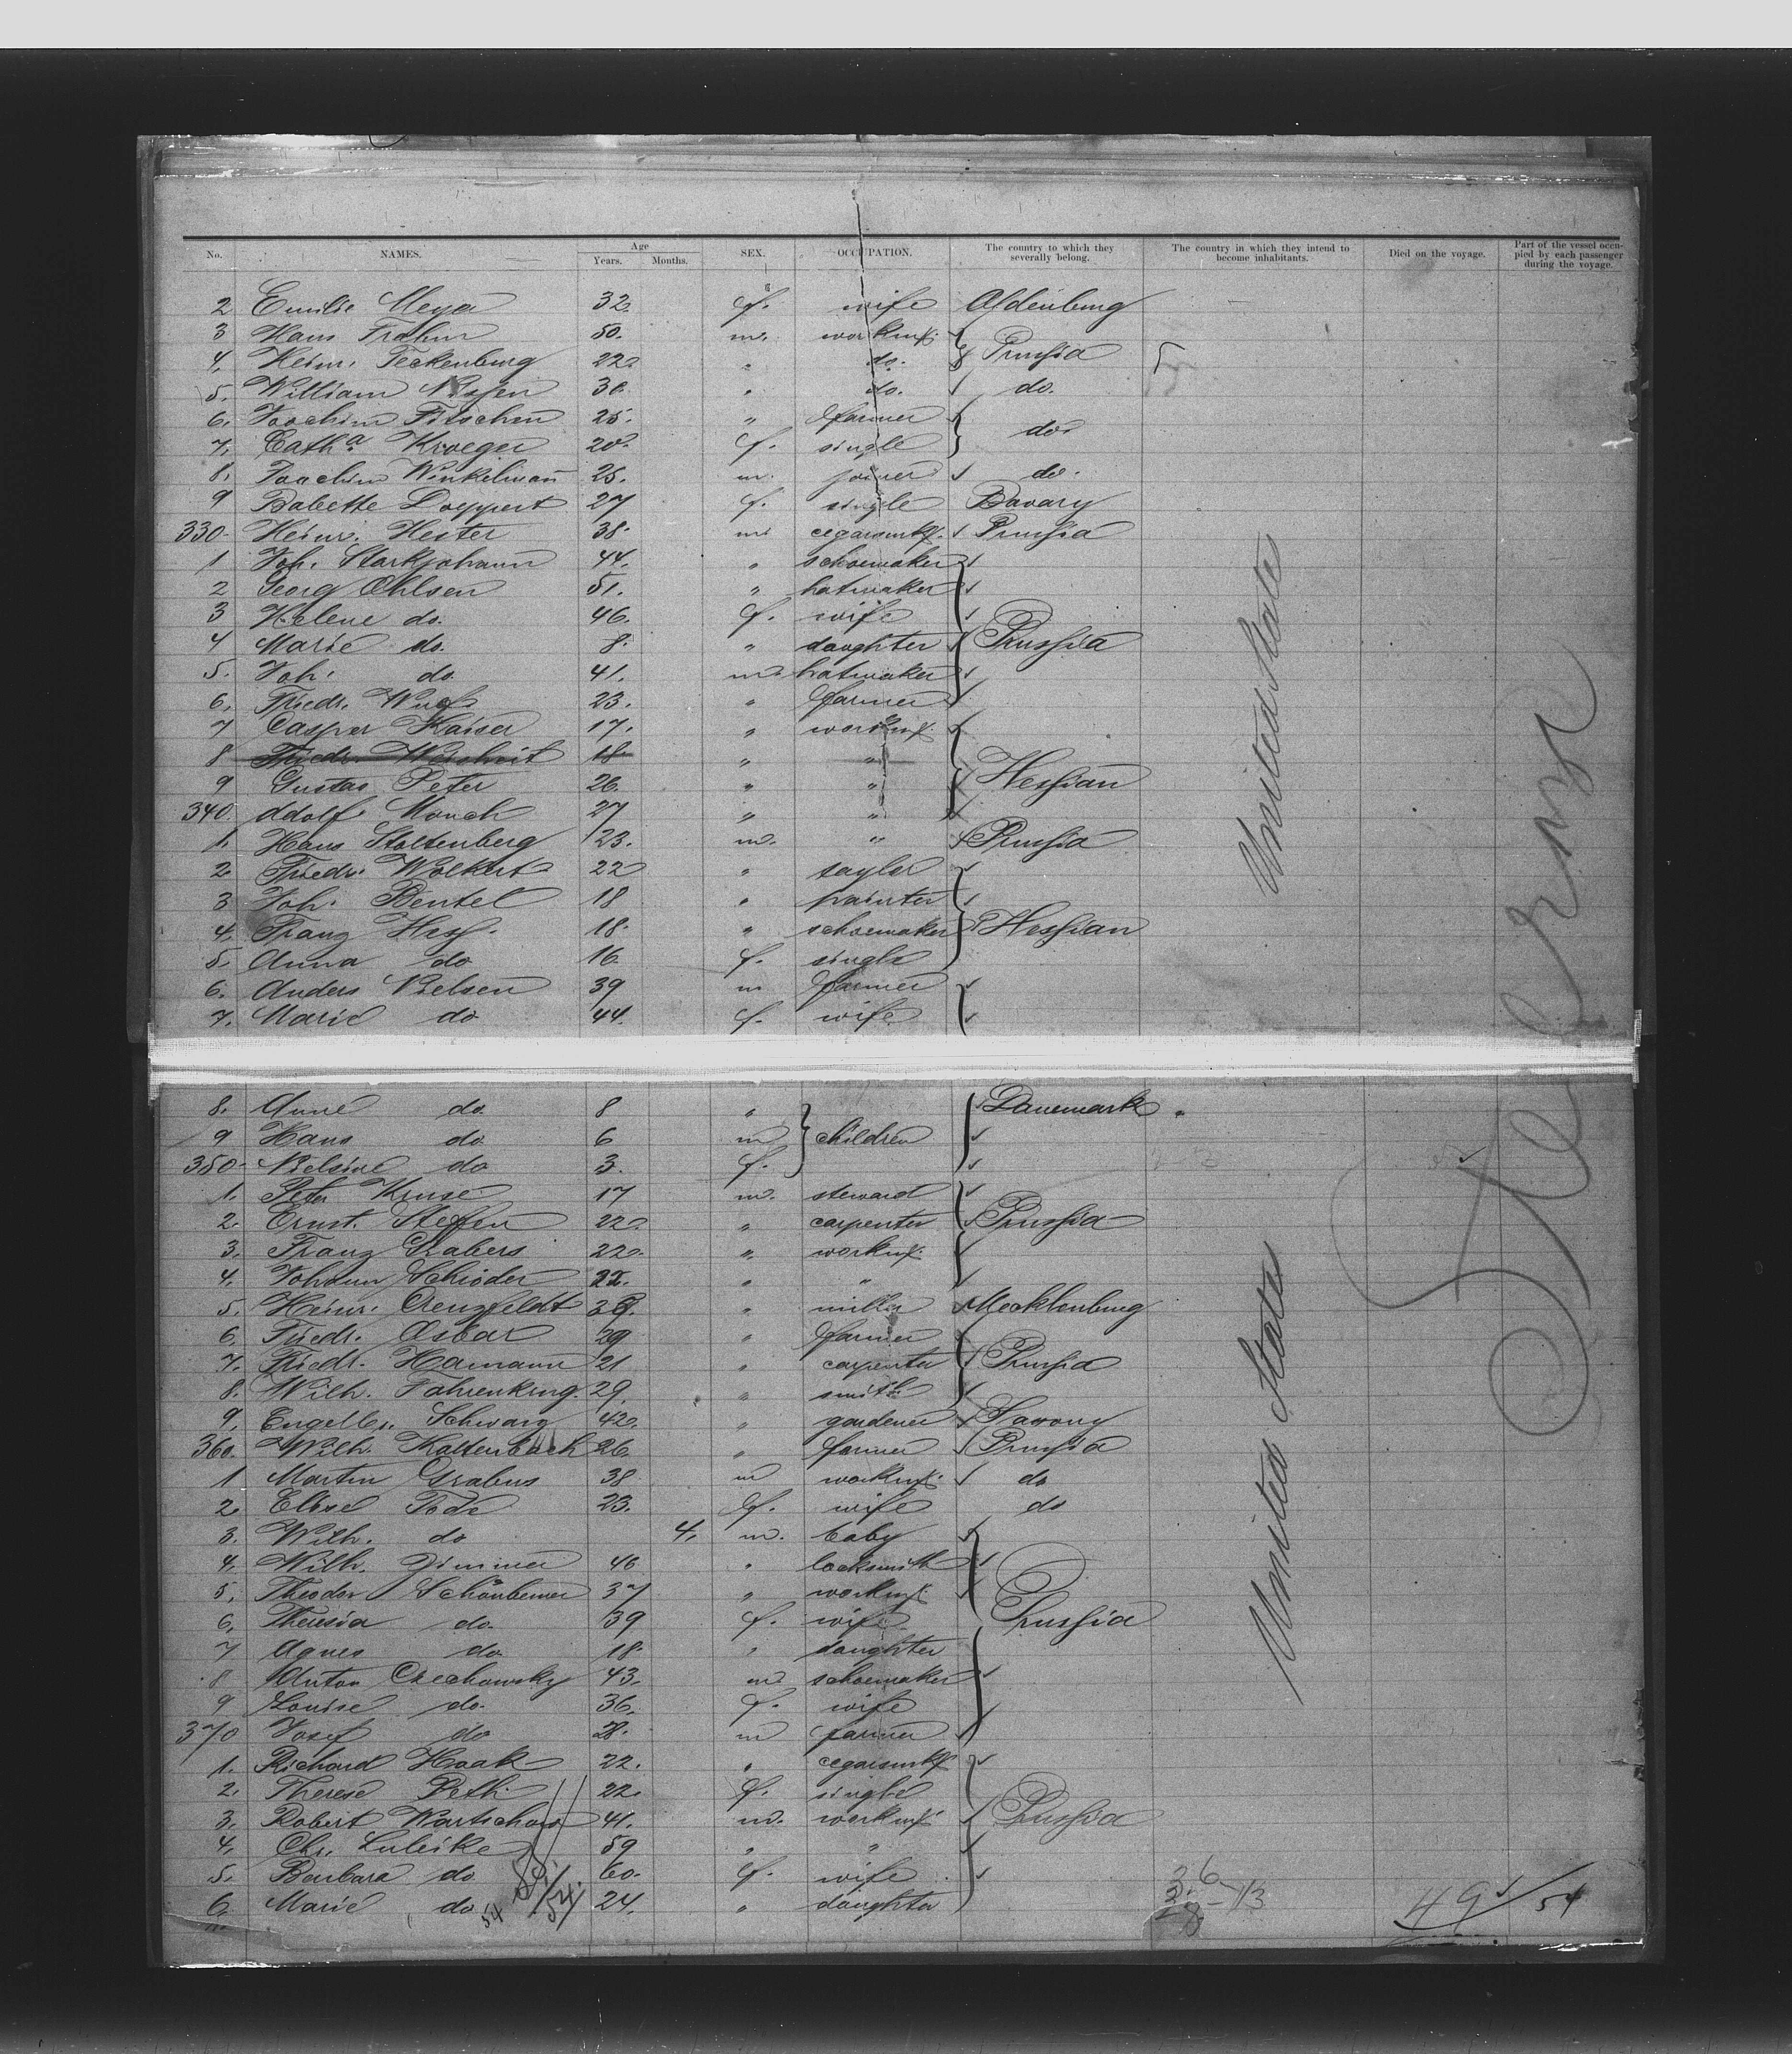 No. NAMES. Age Years. Months. SEX. OCCUPATION. The country to which they severally belong. The country in which they intend to become inhabitants. Died on the voyage. Part of the vessel occupied by each passenger during the voyage.
2 Emilie Meya 32. f. wife Oldenburg
3 Hans Frahm 50. m. workmr.
4. Heinr. Teckenburg 22. " do. Prussia
5. William Nissen 30. " do. do.
6. Joachim Fitschen 25. " farmer
7. Cath.a Kroeger 20. f. single do.
8. Joachim Winkelmann 25. m. joiner do.
9 Babette Doeppert 27 f. single Bavary
330. Heinr. Hester 38. m. cegarsmkr. Prussia
1 Joh. Starkjohann 44. " schoemaker
2 Georg Ohlsen 51. " hatmaker
3 Helene do. 46. f. wife
4 Marie do. 8. " daughter Prussia
5. Joh. do. 41. m. hatmaker
6. Friedr. Wulf 23. " farmer
7 Casper Kaiser 17. " workmr.
8 Friedr. Weisheit 18 " "
9 Gustav Peter 26. " " Hessian
340. Adolf Monch 27 " "
1. Hans Stoltenberg 23. m. " Prussia
2. Friedr. Wolkert 22 " saylor
3 Joh. Bentel 18 " painter
4. Franz Hess. 18. " schoemaker Hessian
5. Anna do 16. f. single
6. Anders Nielsen 39 m farmer
7. Marie do 44. f. wife
8. Anne do. 8 " Danemark
9 Hans do. 6 m children
350. Nielsine do 3. f.
1. Peter Kruse 17 m. steward
2. Ernst. Steffen 22. " carpenter Prussia
3. Franz Grabers 22. " workmr.
4. Johann Schröder " "
5. Heinr. Creuzfeldt " miller Mecklenburg
6. Friedr. Osbar 29 " farmer
7. Friedr. Hamann 21 " carpenter Prussia
8. Wilh. Fahrenkrug. 29. " smith
9. Engelbr. Schwarz 42. " gardener Saxony
360. Wilh. Kaltenbach 26. " farmer Prussia
1 Martin Grabus 38 m workmr. do
2. Elise Tode 23. f. wife do
3. Wilh. do 4. m. baby
4. Wilh. Zimmer 46 " locksmith
5. Theodor Schönberner 37 " workmr.
6. Theresia do. 39 f. wife Prussia
7 Agnes do. 18. " daughter
8 Anton Czechowsky 43. m schoemaker
9 Louise do. 36. f. wife
370 Josef do 28. m farmer
1. Richard Haak 22. " cegarsmkr
2. Therese Beth. 22. f. single
3. Robert Wartschow 41. m. workmr Prussia
4. Chr. Lubcike 59 " "
5. Barbara do. 60. f. wife
6. Marie do. 24. " daughter
United States
United States
49 54
54